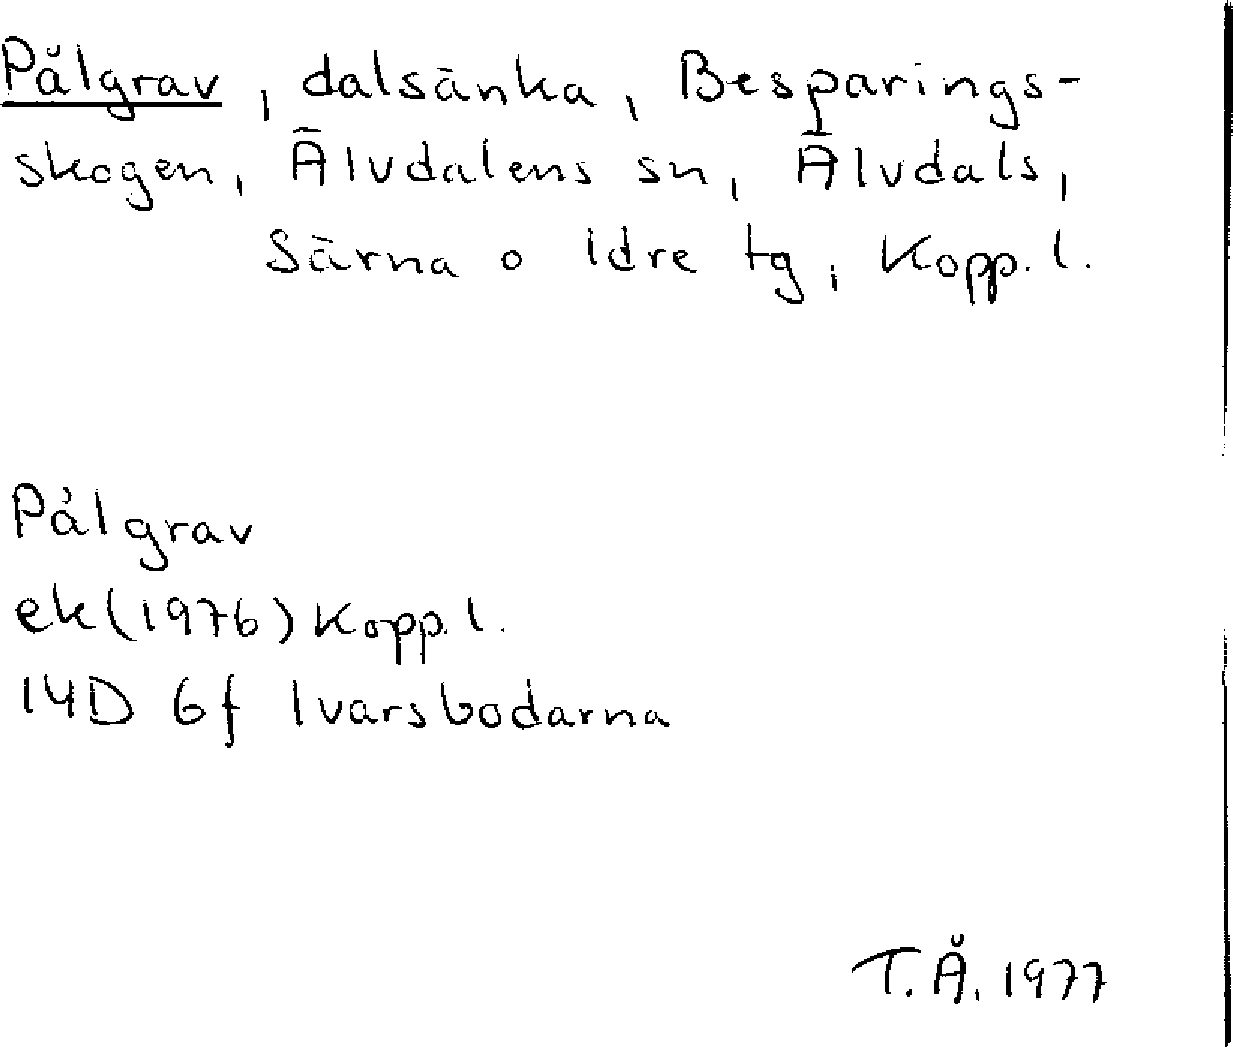 Pålgrav, dalsänka, Besparings-
skogen, Älvdalens sn, Älvdals,
Särna o Idre tg, Kopp. l.
Pålgrav
ek(1976) Kopp. l.
14D 6f Ivarsbodarna
T.Å. 1977